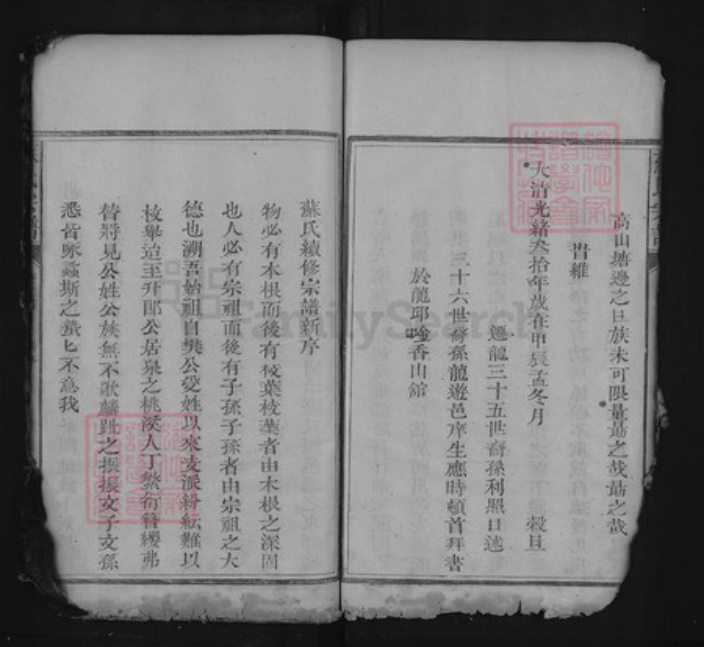 高山塘邊之旦族未可限量勗之哉勗之哉
旹維
大清光緒叁拾年歲在甲辰孟冬月 穀旦
遷龍三十五世裔孫利照口述
三十六世裔孫龍遊邑庠生應時頓首拜書
於龍邱唫香山館
蘇氏續修宗譜新序
物必有木根而後有枝葉枝葉者由木根之深固
也人必有宗祖而後有子孫子孫者由宗祖之大
德也溯吾始祖自樊公受姓以來支派紛紜難以
枚舉迨至升郎公居泉之桃溪人丁繁衍簪纓弗
替將見公姓公族無不歌麟趾之振振文子文孫
悉皆咏螽斯之蟄匕不意我
FamilySearch